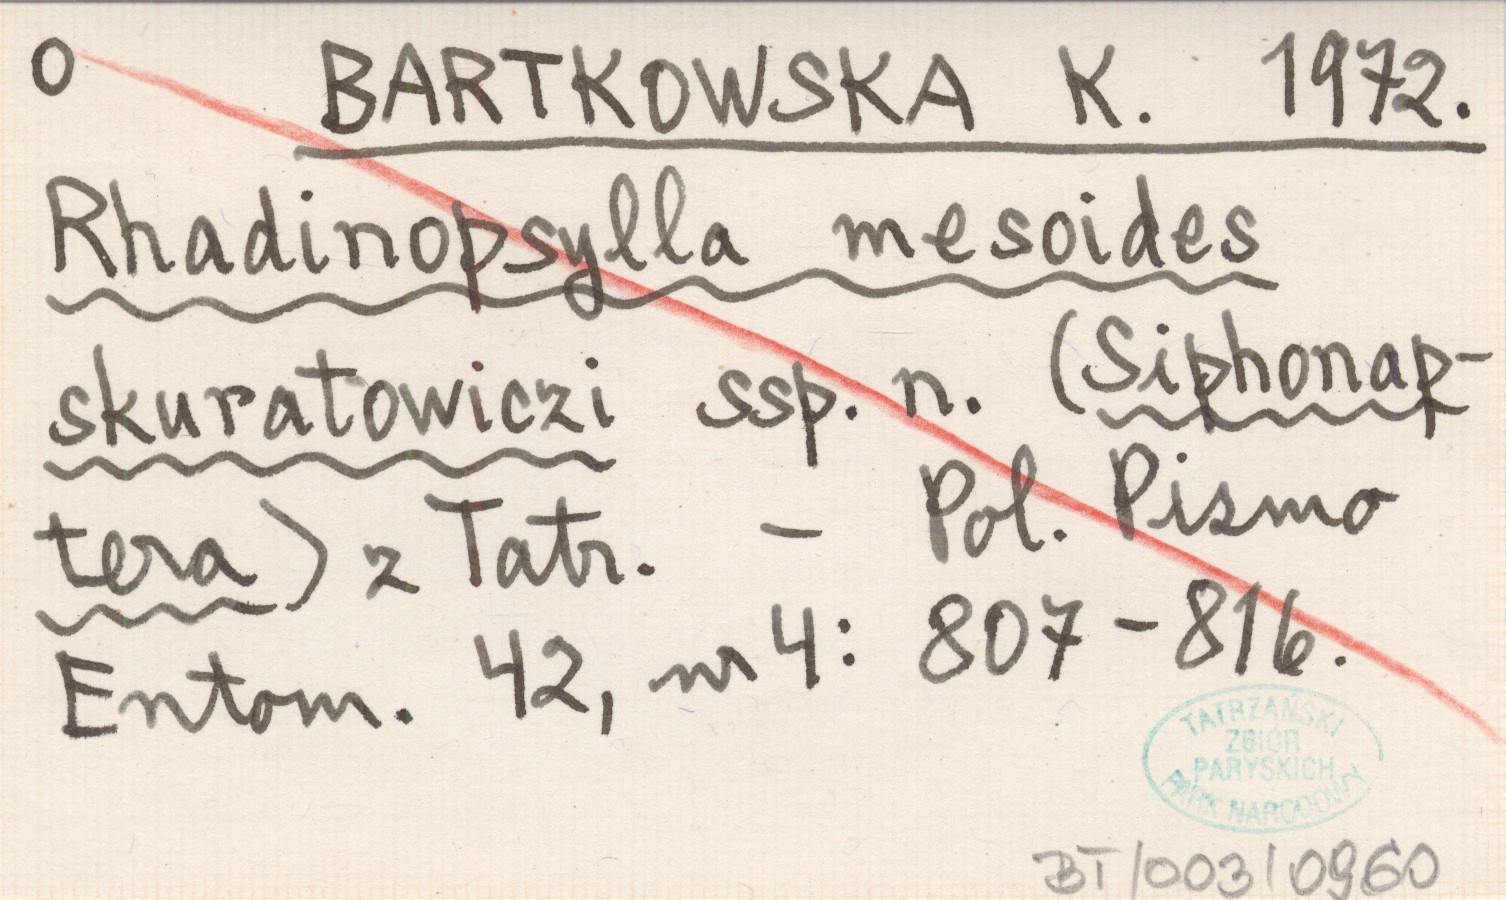 O BARTKOWSKA K. 1972.
Rhadinopsylla mesoides
skuratowiczi ssp. n. (Siphonap-
tera) z Tatr. – Pol. Pismo
Entom. 42, nr 4: 807-816.
TATRZAŃSKI
ZBIÓR
PARYSKICH
PARK NARODOWY
BT/003/0960